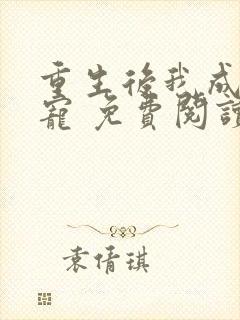 重生後我成
寵 免費閱讀
袁倩琪